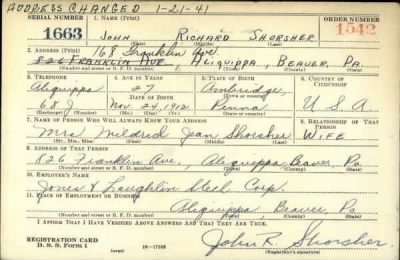 ADDRESS CHANGED 1-21-41
SERIAL NUMBER 1. NAME (Print) ORDER NUMBER
1663 JOHN RICHARD SHORSHER 1542
(First) (Middle) (Last)
2. ADDRESS (Print) 168 Franklin Ave
826 FRANKLIN AVE, ALIQUIPPA, BEAVER, PA.
(Number and street or R. F. D. number) (Town) (County) (State)
3. TELEPHONE 4. AGE IN YEARS 5. PLACE OF BIRTH 6. COUNTRY OF CITIZENSHIP
Aliquippa 27 Ambridge,
68 J Nov. 24, 1912 Penna U. S. A.
(Exchange) (Number) (Mo.) (Day) (Yr.) (State or country)
7. NAME OF PERSON WHO WILL ALWAYS KNOW YOUR ADDRESS 8. RELATIONSHIP OF THAT PERSON
Mrs Mildred Jean Shorsher WIFE
(Mr., Mrs., Miss) (First) (Middle) (Last)
9. ADDRESS OF THAT PERSON
826 Franklin Ave., Aliquippa Beaver, Pa
(Number and street or R. F. D. number) (Town) (County) (State)
10. EMPLOYER'S NAME
Jones & Laughlin Steel Corp.
11. PLACE OF EMPLOYMENT OR BUSINESS
Aliquippa, Beaver, Pa
(Number and street or R. F. D. number) (Town) (County) (State)
I AFFIRM THAT I HAVE VERIFIED ABOVE ANSWERS AND THAT THEY ARE TRUE.
REGISTRATION CARD John R. Shorsher
D. S. S. Form 1 (Registrant's signature)